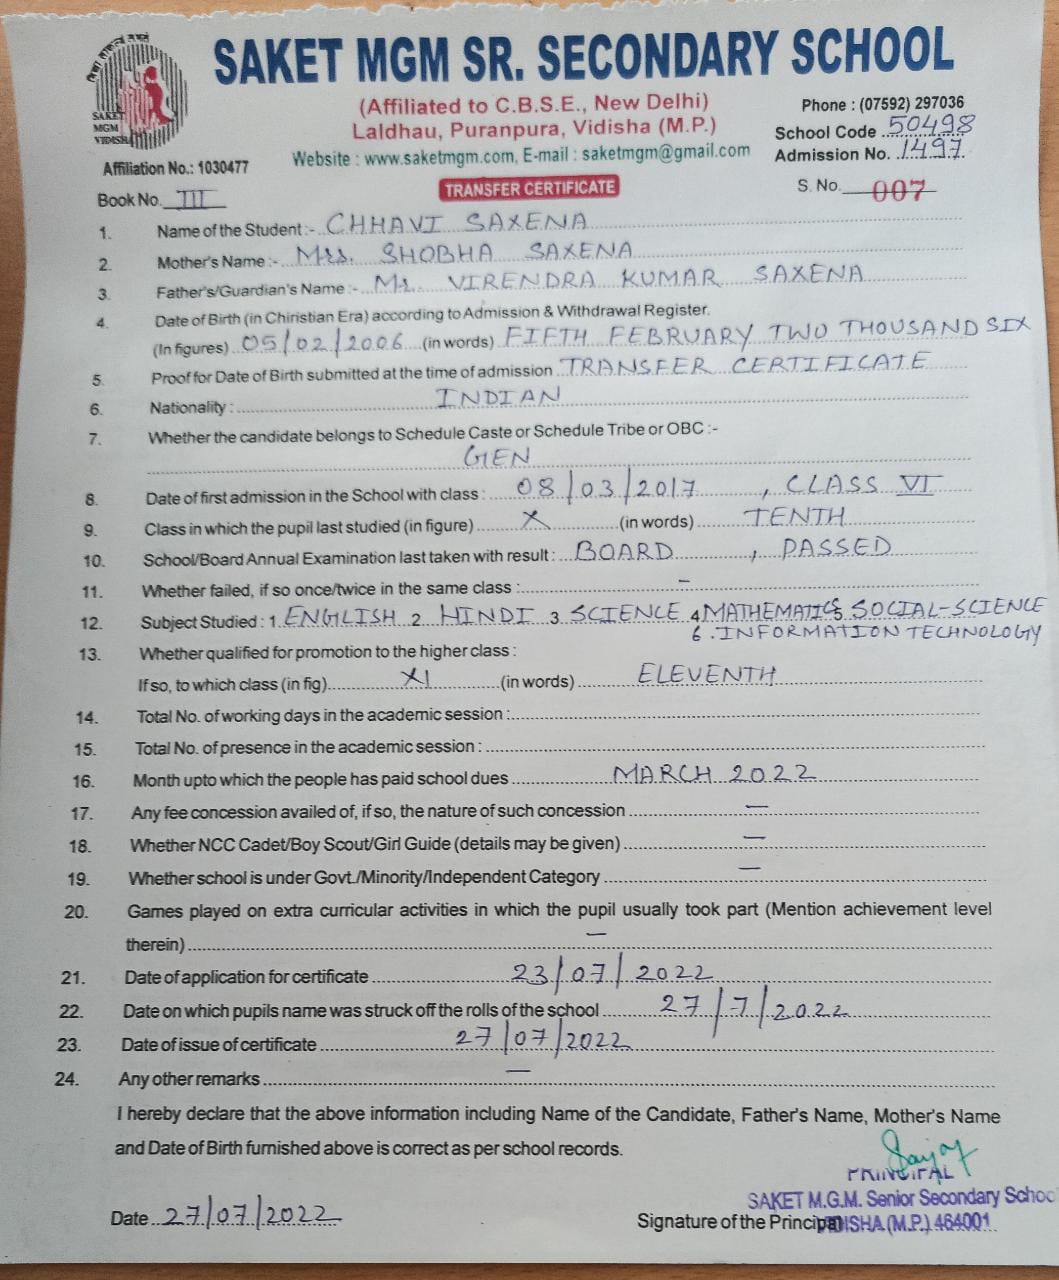 SAKET MGM SR. SECONDARY SCHOOL
SAKET
MGM
VIDISHA
(Affiliated to C.B.S.E., New Delhi)
Laldhau, Puranpura, Vidisha (M.P.)
Website : www.saketmgm.com, E-mail : saketmgm@gmail.com
Phone : (07592) 297036
School Code ..50498
Admission No. .1497.
Affiliation No.: 1030477
Book No. III
TRANSFER CERTIFICATE
S. No. 007
1. Name of the Student :- CHHAVI SAXENA
2. Mother's Name :- Mrs. SHOBHA SAXENA
3. Father's/Guardian's Name :- Mr. VIRENDRA KUMAR SAXENA
4. Date of Birth (in Chiristian Era) according to Admission & Withdrawal Register.
(In figures) 05/02/2006 (in words) FIFTH FEBRUARY TWO THOUSAND SIX
5. Proof for Date of Birth submitted at the time of admission TRANSFER CERTIFICATE
6. Nationality : INDIAN
7. Whether the candidate belongs to Schedule Caste or Schedule Tribe or OBC :-
GEN
8. Date of first admission in the School with class : 08/03/2017 , CLASS VI
9. Class in which the pupil last studied (in figure) X (in words) TENTH
10. School/Board Annual Examination last taken with result : BOARD , PASSED
11. Whether failed, if so once/twice in the same class : –
12. Subject Studied : 1. ENGLISH 2. HINDI 3. SCIENCE 4. MATHEMATICS 5. SOCIAL-SCIENCE
6. INFORMATION TECHNOLOGY
13. Whether qualified for promotion to the higher class :
If so, to which class (in fig) XI (in words) ELEVENTH
14. Total No. of working days in the academic session :
15. Total No. of presence in the academic session :
16. Month upto which the people has paid school dues MARCH 2022
17. Any fee concession availed of, if so, the nature of such concession —
18. Whether NCC Cadet/Boy Scout/Girl Guide (details may be given) —
19. Whether school is under Govt./Minority/Independent Category —
20. Games played on extra curricular activities in which the pupil usually took part (Mention achievement level
therein) —
21. Date of application for certificate 23/07/2022
22. Date on which pupils name was struck off the rolls of the school 27/7/2022
23. Date of issue of certificate 27/07/2022
24. Any other remarks —
I hereby declare that the above information including Name of the Candidate, Father's Name, Mother's Name
and Date of Birth furnished above is correct as per school records.
Sanjay
PRINCIPAL
SAKET M.G.M. Senior Secondary Schoo
Date 27/07/2022
Signature of the Principal
VIDISHA (M.P.) 464001